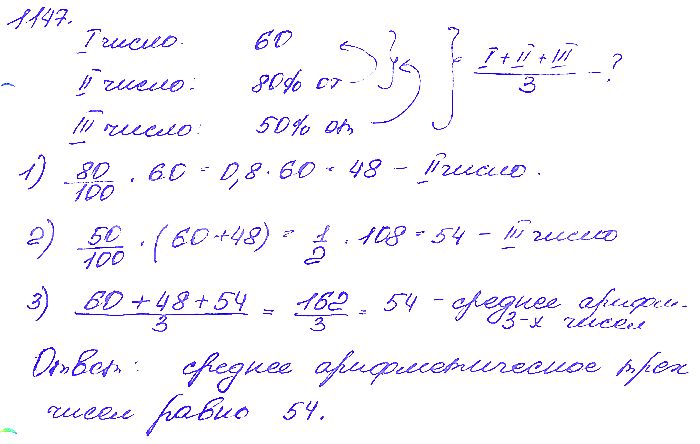 1147.
I число. 60
II число: 80% от
III число: 50% от
I + II + III / 3 - ?
1) 80/100 · 60 = 0,8 · 60 = 48 - II число.
2) 50/100 · (60+48) = 1/2 · 108 = 54 - III число
3) 60 + 48 + 54 / 3 = 162/3 = 54 - среднее арифм.
3-х чисел
Ответ: среднее арифметическое трех
чисел равно 54.